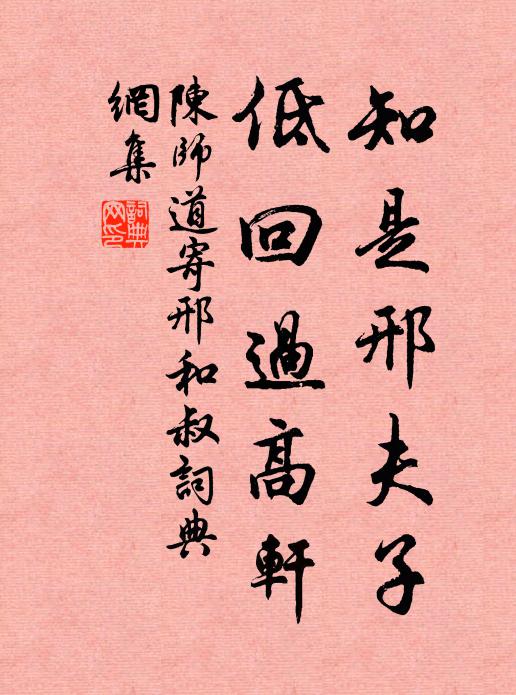 知是邢夫子
低回過高軒
陳師道寄邢和叔詞典
網集
詞典
网印